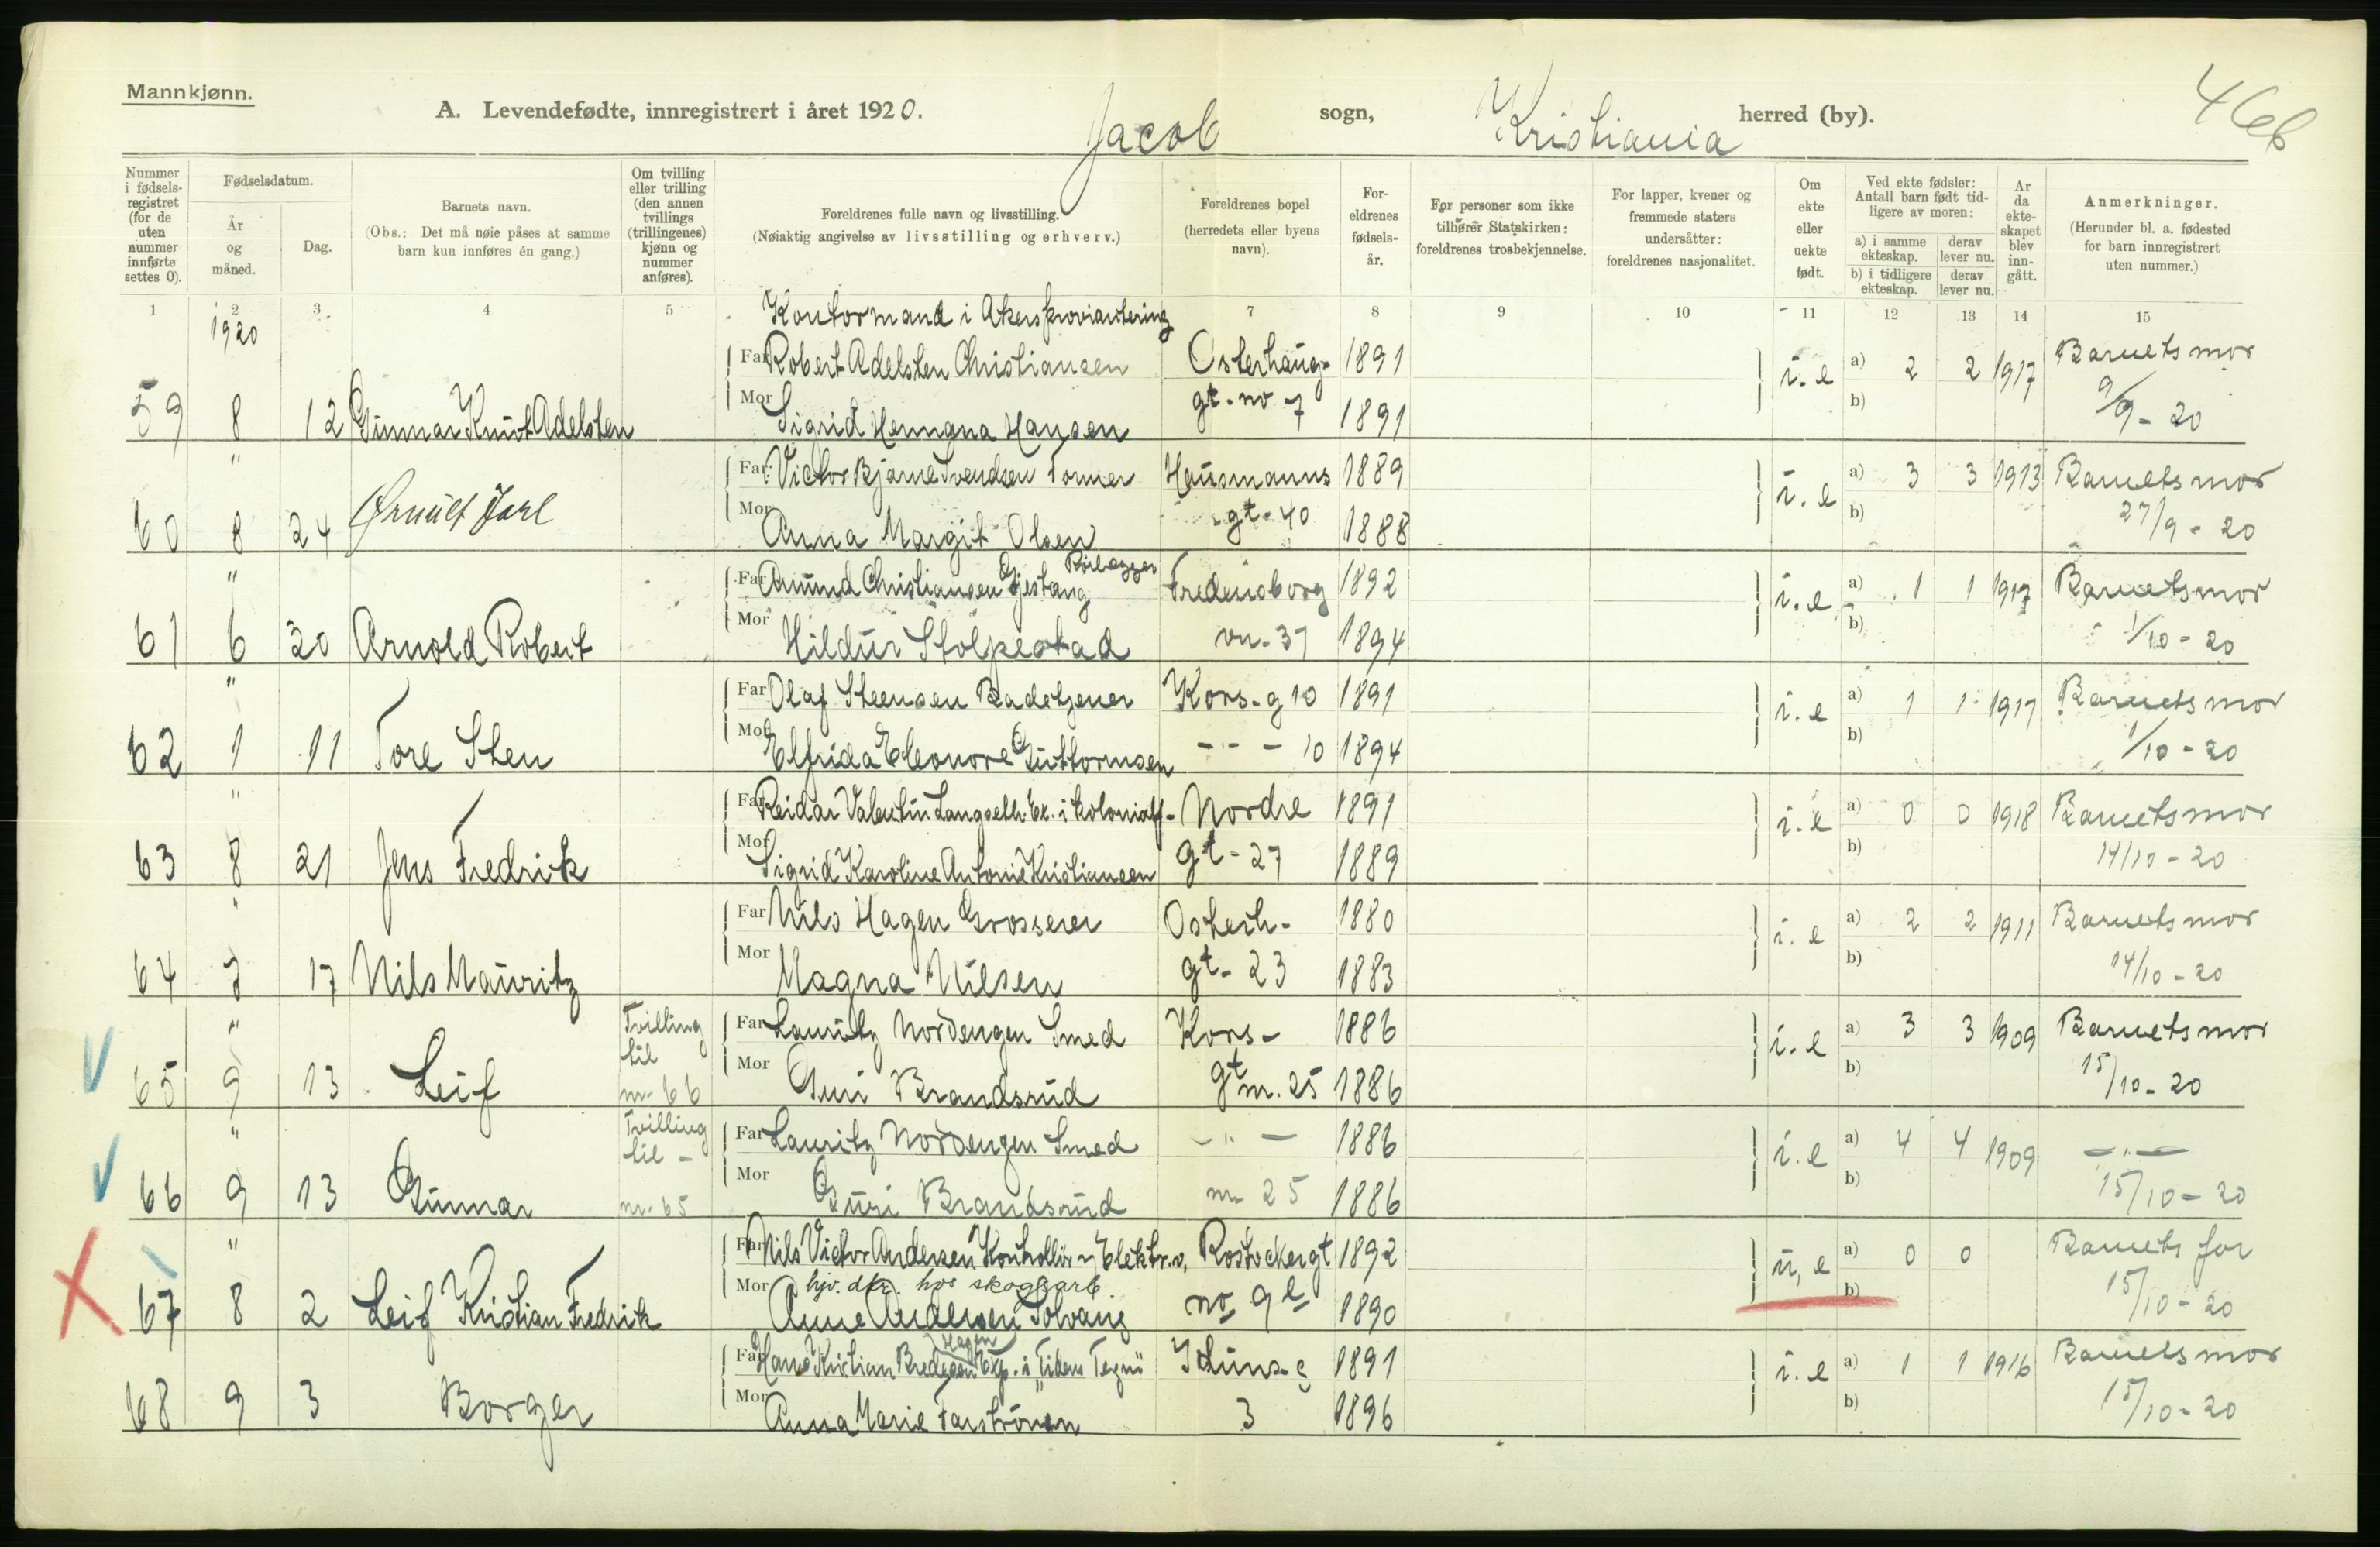 Mannkjønn.
A. Levendefødte, innregistrert i året 1920. Jacob sogn, Kristiania herred (by).
Nummer i fødselsregistret (for de uten nummer innførte settes 0).
Fødselsdatum.
År og måned.
Dag.
Barnets navn.
(Obs.: Det må nøie påses at samme barn kun innføres én gang.)
Om tvilling eller trilling (den annen tvillings (trillingenes) kjønn og nummer anføres).
Foreldrenes fulle navn og livsstilling.
(Nøiaktig angivelse av livsstilling og erhverv.)
Foreldrenes bopel (herredets eller byens navn).
Foreldrenes fødselsår.
For personer som ikke tilhører Statskirken: foreldrenes trosbekjennelse.
For lapper, kvener og fremmede staters undersåtter: foreldrenes nasjonalitet.
Om ekte eller uekte født.
Ved ekte fødsler: Antall barn født tidligere av moren:
a) i samme ekteskap. derav lever nu.
b) i tidligere ekteskap. derav lever nu.
År da ekteskapet blev inngått.
Anmerkninger.
(Herunder bl. a. fødested for barn innregistrert uten nummer.)
1 2 3 4 5 7 8 9 10 11 12 13 14 15
1920
Kontormand i Akers proviantering
Far Robert Adelsten Christiansen Osterhaug- 1891 i. e a) 2 2 1917 Barnets mor
59 8 12 Gunnar Knut Adelsten Mor Sigrid Hansen gt. no 7 1891 b) 9/9 - 20
" Far Victor Bjarne Svendsen Former Hausmanns 1889 i. e a) 3 3 1913 Barnets mor
60 8 24 Ørnulf Jarl Mor Anna Margit Olsen gt. 40 1888 b) 27/9 - 20
Rørlægger
" Far Amund Christiansen Gjestang Fredensborg 1892 i. e a) 1 1 1917 Barnets mor
61 6 20 Arnold Robert Mor Hildur Stolpestad vn. 37 1894 b) 1/10 - 20
" Far Olaf Steensen Badetjener Kors. g 10 1891 i. e a) 1 1 1917 Barnets mor
62 1 11 Tore Sten Mor Elfrida Eleonore Guttormsen -"- 10 1894 b) 1/10 - 20
" Far Reidar Valentin Langseth Ex. i kolonialf- Nordre 1891 i. e a) 0 0 1918 Barnets mor
63 8 21 Jens Fredrik Mor Sigrid Karoline Antonie Kristiansen gt - 27 1889 b) 14/10 - 20
" Far Nils Hagen Grosserer Osterh- 1880 i. e a) 2 2 1911 Barnets mor
64 7 17 Nils Mauritz Mor Magna Nilsen gt. 23 1883 b) 14/10 - 20
" Tvilling til Far Lauritz Nordengen Smed Kors- 1886 i. e a) 3 3 1909 Barnets mor
65 9 13 Leif nr. 66 Mor Guri Brandsrud gt nr. 25 1886 b) 15/10 - 20
" Tvilling til - Far Lauritz Nordengen Smed -"- 1886 i. e a) 4 4 1909 -"-
66 9 13 Gunnar nr. 65 Mor Guri Brandsrud nr 25 1886 b) 15/10 - 20
" Far Nils Victor Andersen Kontrollør v/ Elektr.v. Rostockergt 1892 u, e a) 0 0 Barnets far
hjv. dtr. hos skogsarb.
67 8 2 Leif Kristian Fredrik Mor Anne Andersen Solvang no 9 1890 b) 15/10 - 20
Hagen
Far Hans Kristian Exp. i "Tidens Tegn" Iduns g 1891 i. e a) 1 1 1916 Barnets mor
68 9 3 Borger Mor Anna Marie 3 1896 b) 15/10 - 20